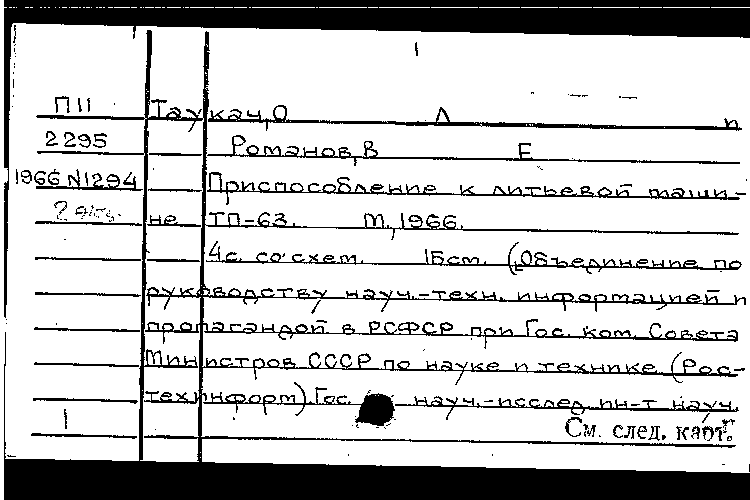 П11 Таукач, О Л и
2295 Романов, В Е
1966 N1294 Приспособление к литьевой маши-
2 экз. не ТП-63. М., 1966.
4с. со схем. 15см. (Объединение по
руководству науч.-техн. информацией и
пропагандой в РСФСР при Гос. ком. Совета
Министров СССР по науке и технике (Рос-
техинформ). Гос. науч.-исслед. ин-т науч.
1 См. след. карт.